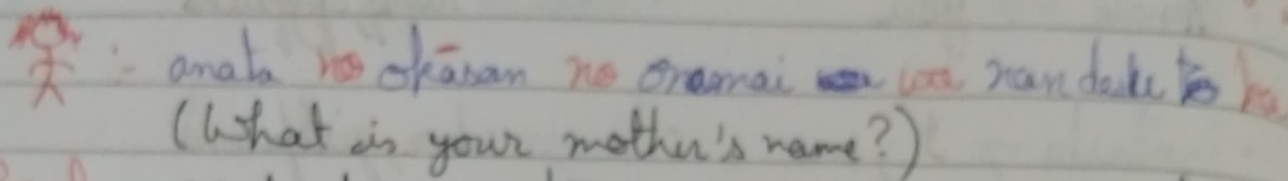 :- anata no okāsan no onamai wa nan desu ka
(What is your mother's name?)